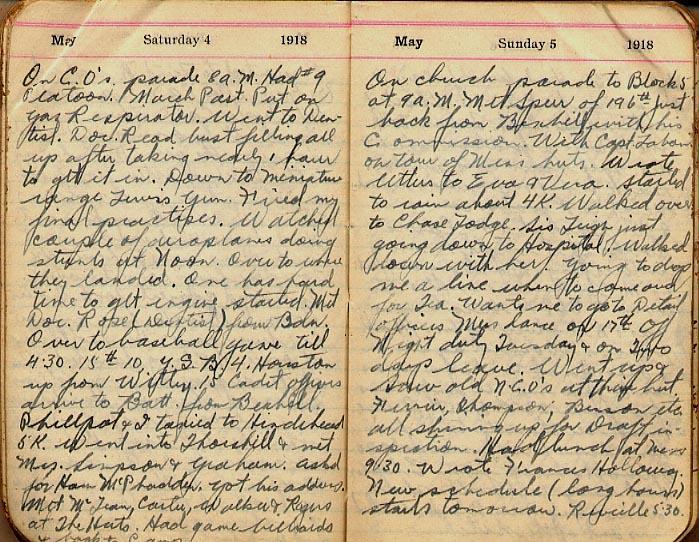 May Saturday 4 1918
On C.O's. parade 8 a.M. Had #9
Platoon. March Past. Put on
Gaz Respirator. Went to Den-
tist. Doc. Read bust filling all
up after taking nearly 1 hour
to get it in. Down to Meniature
range Lewis Gun. Fired my
final practises. Watched
couple of aeroplanes doing
stunts at Noon. Over to where
they landed. One has hard
time to get engine started. Met
Doc. Rose (Dentist) from Bdn.
Over to baseball game till
4:30. 15th 10, Y.S.B. 4. Houston
up from Witley. 15 Cadet officers
arrive to Batt. from Bexhill.
Phillpot & I taxied to Hindehead
5 K. Went into Thorshill & met
Mrs. Simpson & Graham. Askd
for Ham McPhadden. Got his address.
Met McLean, Carter, Walker & Rogers
at The Huts. Had game billiards
& back to Camp.
May Sunday 5 1918
On church parade to Block 5
at 9 a.M. Met Spur of 196th just
back from Bexhill with his
Commission. With Capt.
on tour of Mens huts. Wrote
letters to Eva & Vera. Started
to rain about 4 K. Walked over
to Chase Lodge. Sis Leigh just
going down to Hospital. Walked
down with her. Going to drop
me a line when to come over
for Tea. Wants me to go to Detail
officers Mess dance on 17th. Off
Night duty Tuesday & on Two
days leave. Went up &
saw old N.C.O's at their hut
Thompson, etc
all shining up for Draft in-
spection. Had lunch at mess
9:30. Wrote Francis Holloway.
New schedule (long hours)
starts tomorrow. Reveille 5:30.